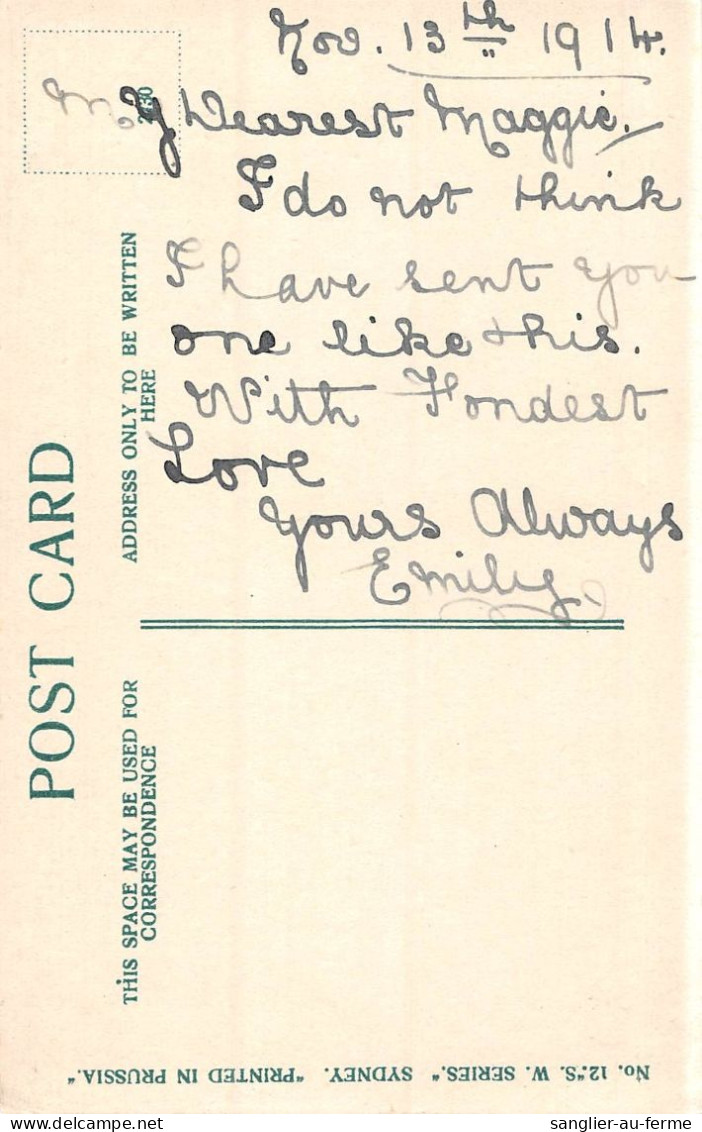 Nov. 13th 1914.
My Dearest Maggie.
I do not think
I have sent you
one like this.
With Fondest
Love
Yours Always
Emily.
POST CARD
ADDRESS ONLY TO BE WRITTEN
HERE
THIS SPACE MAY BE USED FOR
CORRESPONDENCE
No. 12."S. W. SERIES." SYDNEY. "PRINTED IN PRUSSIA."
sanglier-au-ferme